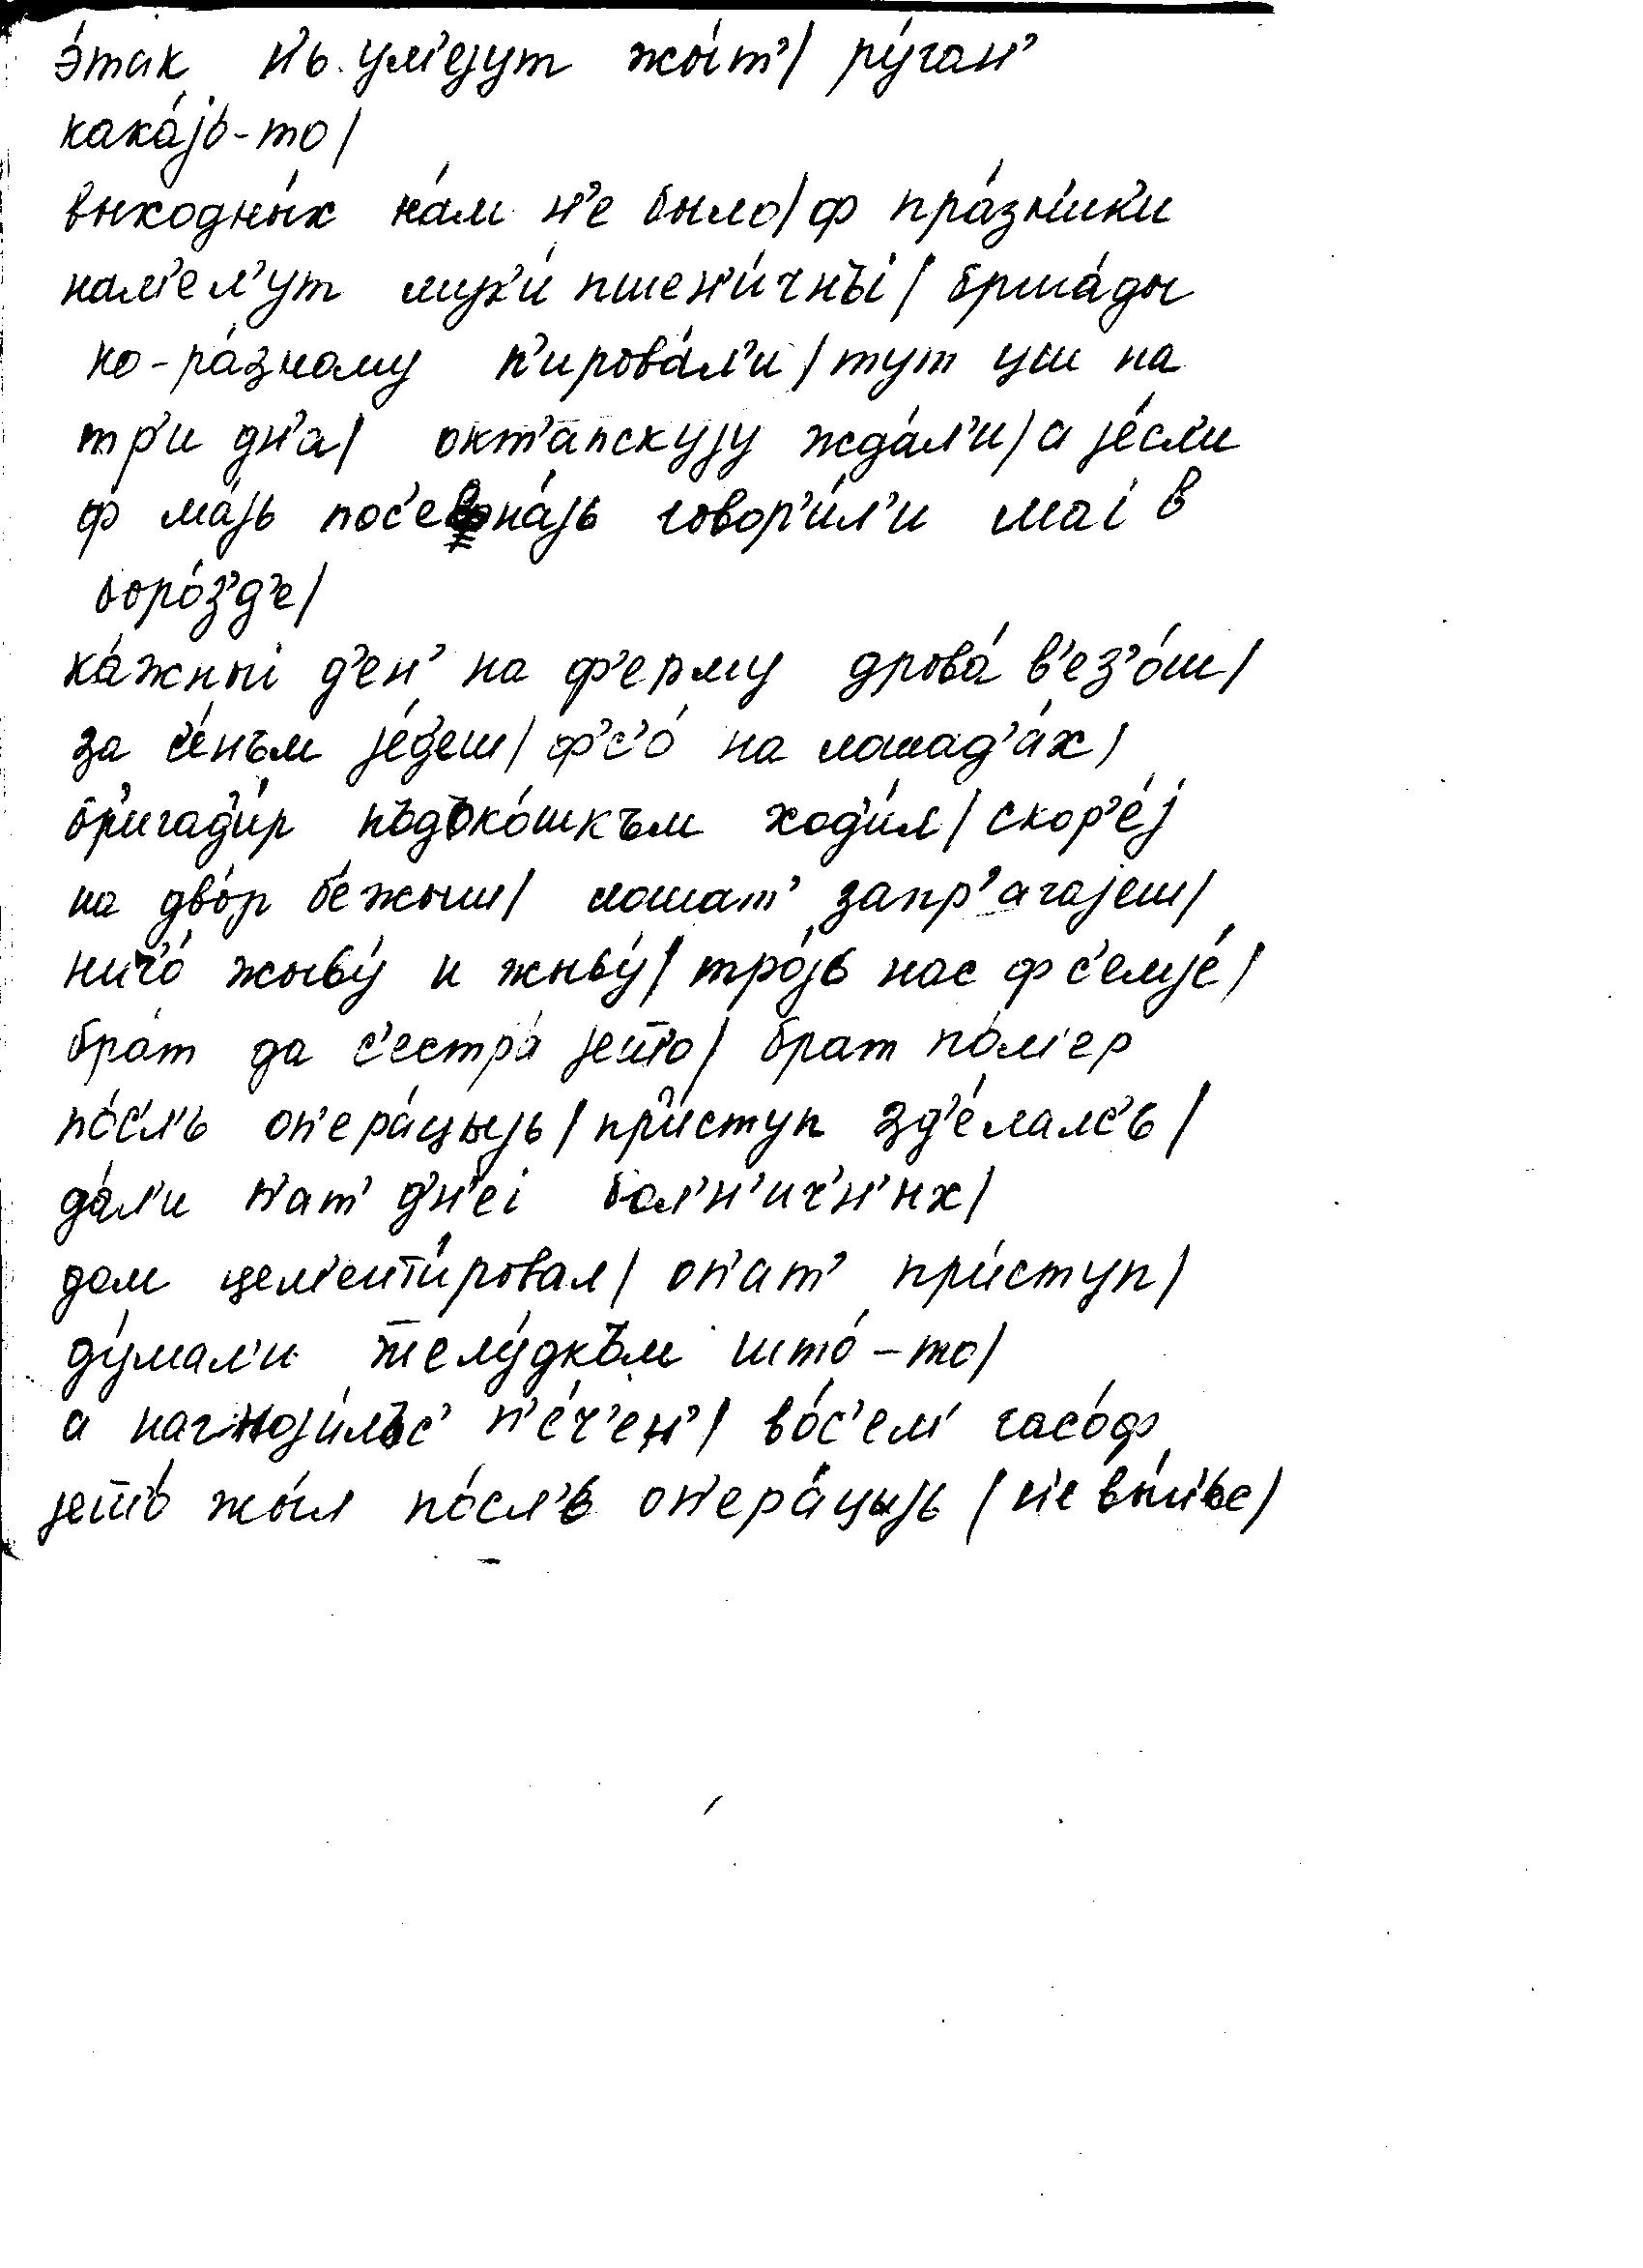 э́так н'ь ум'еjут жы́т'/ ру́ган'
кака́jь-то/
выходны́х на́м н'е было/ ф пра́зн'ик'и
нам'ел'ут мук'и́ пшен'и́чнъi/ брига́ды
по-ра́зному п'ирова́л'и/ тут уш на
тр'и дн'а/ окт'апскуjу жда́л'и/ а jе́сл'и
ф ма́jь пос'евна́jь говор'и́л'и маi в
боро́з'д'е/
ка́жныi д'ен' на ф'ерму дрова́ в'ез'о́ш/
за с'е́нъм jе́д'еш/ ф'с'о́ на лошад'а́х/
бр'игад'и́р пъдоко́шкъм ход'и́л/ скор'е́j
на дво́р б'е́жыш/ лошат' запр'агаjеш/
нич'о́ жыву́ и жыву́/ тро́jь нас ф с'емjе́/
бра́т да с'естра́ jешто/ брат по́м'ер
по́с'л'ь оп'ера́цыjь/ пр'и́ступ зд'е́лалс'ь/
да́л'и п'ат' д'н'еi бол'н'ич'н'их/
дом цем'ент'и́ровал/ оп'ат' пр'и́ступ/
ду́мал'и желу́дкъм што́-то/
а нагноjи́лъс' п'е́ч'ен'/ во́с'ем' часо́ф
jешто́ жы́л по́сл'ь оп'ера́цыjь/ н'е вы́н'ьс/